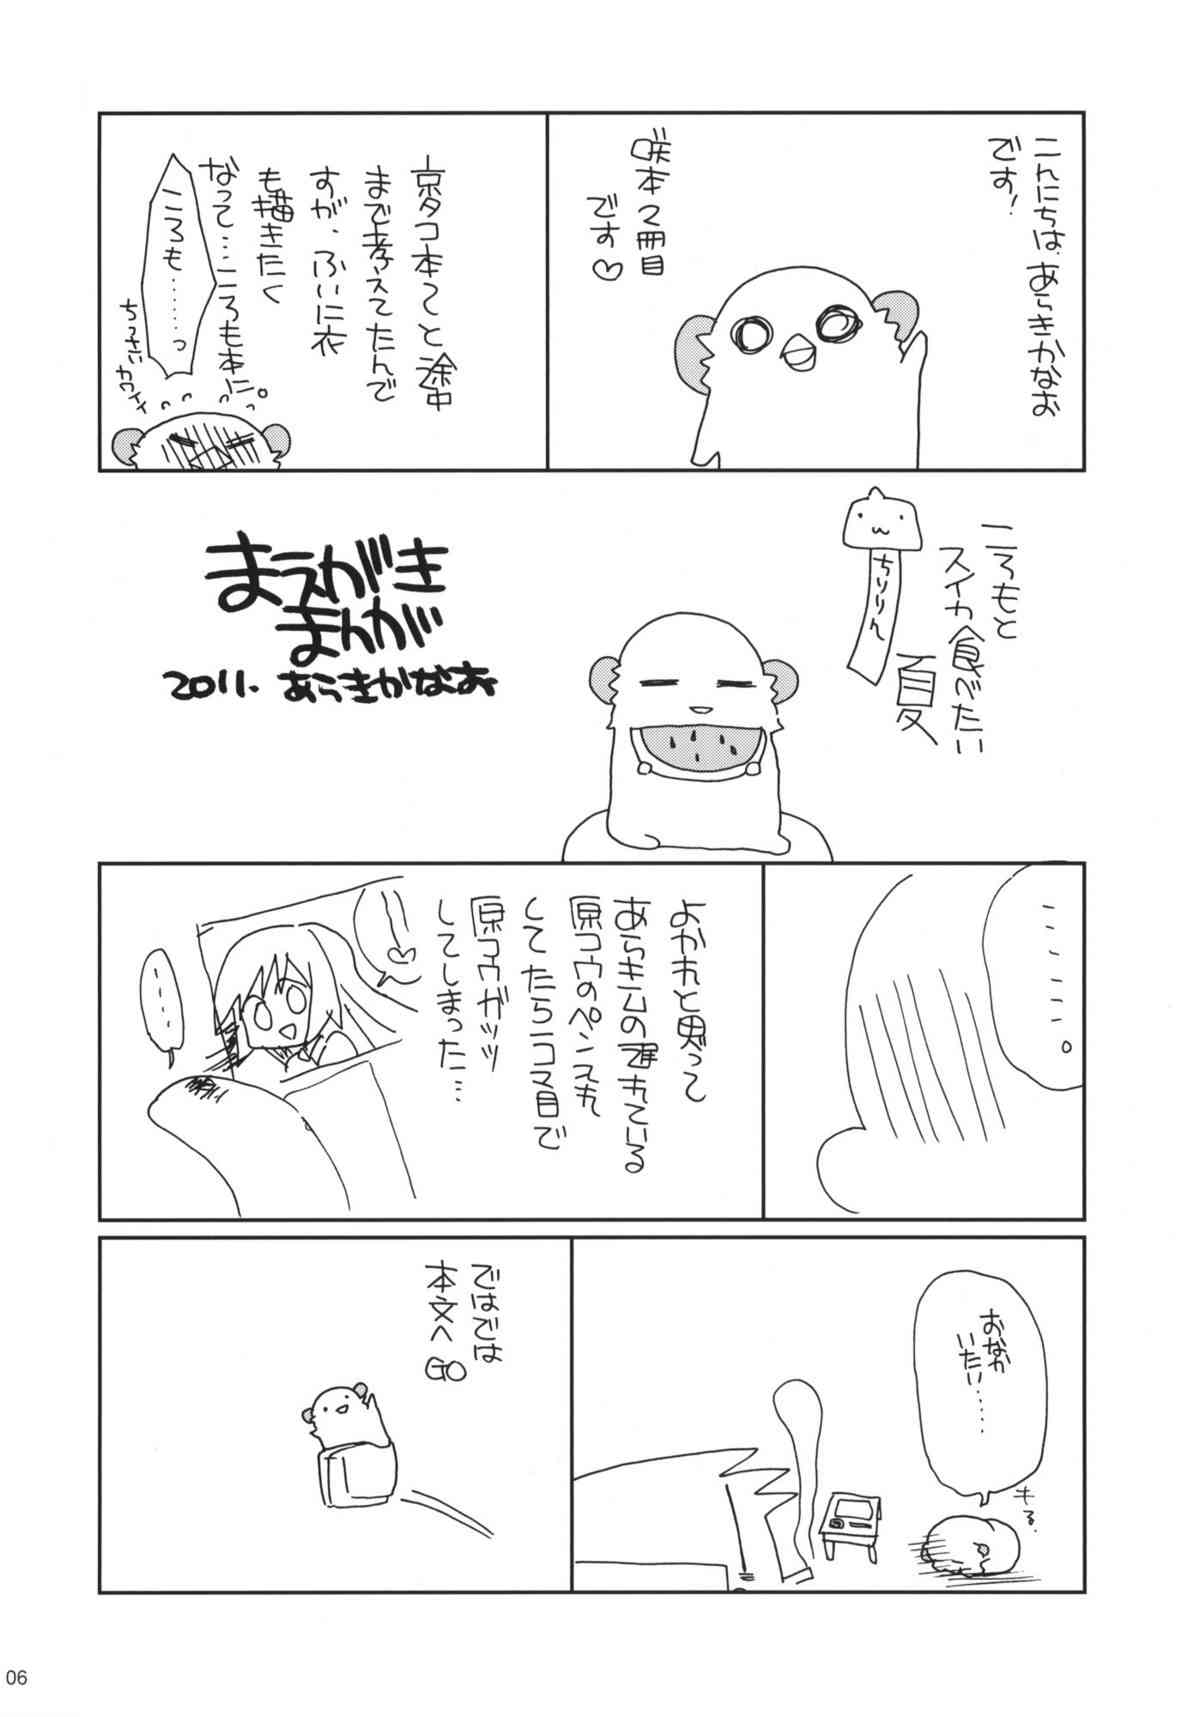 こんにちは、あらきかなお
です!
咲本2冊目
です♡
京タコ本てと途中
まで考えてたんで
すが、ふいに衣
も描きたく
なって…ころも本に。
ころも……っ
ちっさいカワイイ
ころもと
スイカ食べたい
夏
ちりりん
まえがき
まんが
2011. あらきかなお
……。
よかれと思って
あらきムの遅れている
原コウのペン入れ
してたら一コマ目で
原コウガッツ
してしまった…
……
おなか
いたい……
キュ
ではでは
本文へ
GO
06